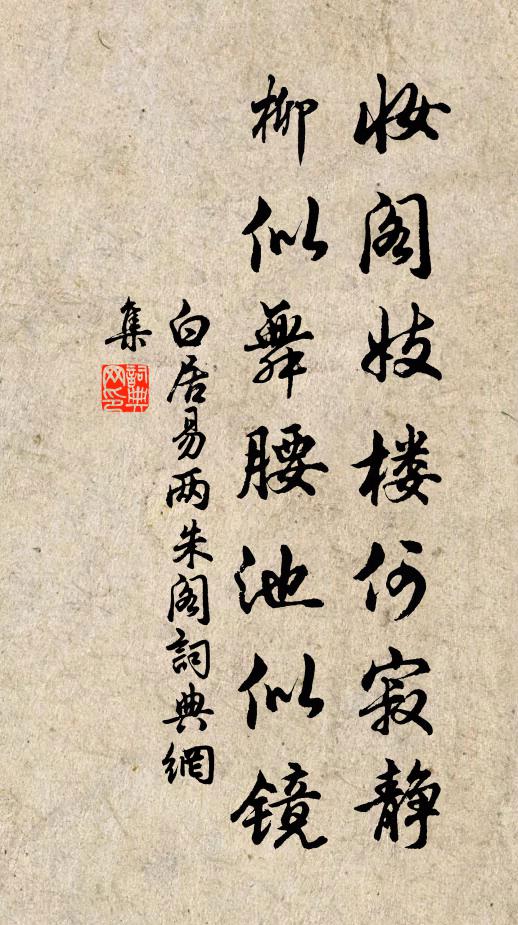 妆阁妓楼何寂静
柳似舞腰池似镜
白居易两朱阁詞典網
集
詞典网印